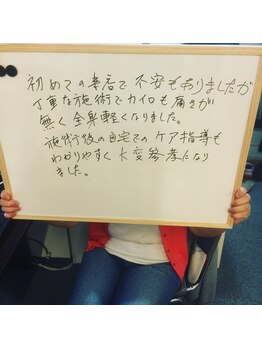 初めての来店で不安もありましたが
丁重な施術でカイロも痛さが
無く全身軽くなりました。
施術後の自宅でのケア指導も
わかりやすく大変参考になり
ました。